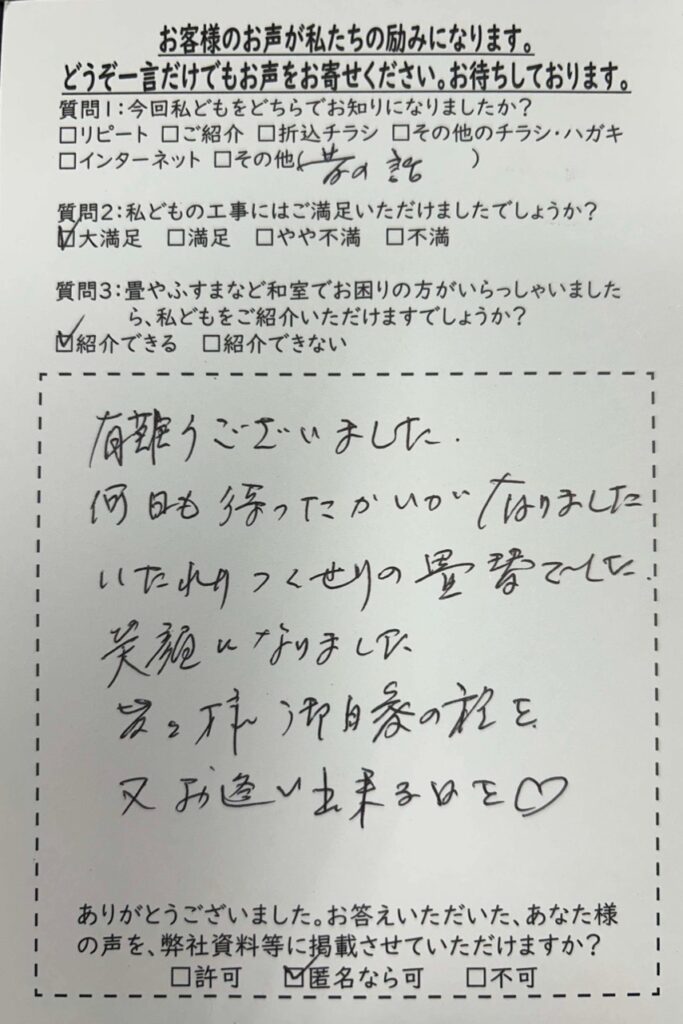 お客様のお声が私たちの励みになります。
どうぞ一言だけでもお声をお寄せください。お待ちしております。
質問1:今回私どもをどちらでお知りになりましたか?
□リピート □ご紹介 □折込チラシ □その他のチラシ・ハガキ
□インターネット □その他( の話 )
質問2:私どもの工事にはご満足いただけましたでしょうか?
☑大満足 □満足 □やや不満 □不満
質問3:畳やふすまなど和室でお困りの方がいらっしゃいました
ら、私どもをご紹介いただけますでしょうか?
☑紹介できる □紹介できない
有難うございました.
何日も待ったかいが なりました
いたれりつくせりの畳替でした.
笑顔になりました
皆々様 御自愛の程を
又お逢い出来る日を♡
ありがとうございました。お答えいただいた、あなた様
の声を、弊社資料等に掲載させていただけますか?
□許可 ☑匿名なら可 □不可